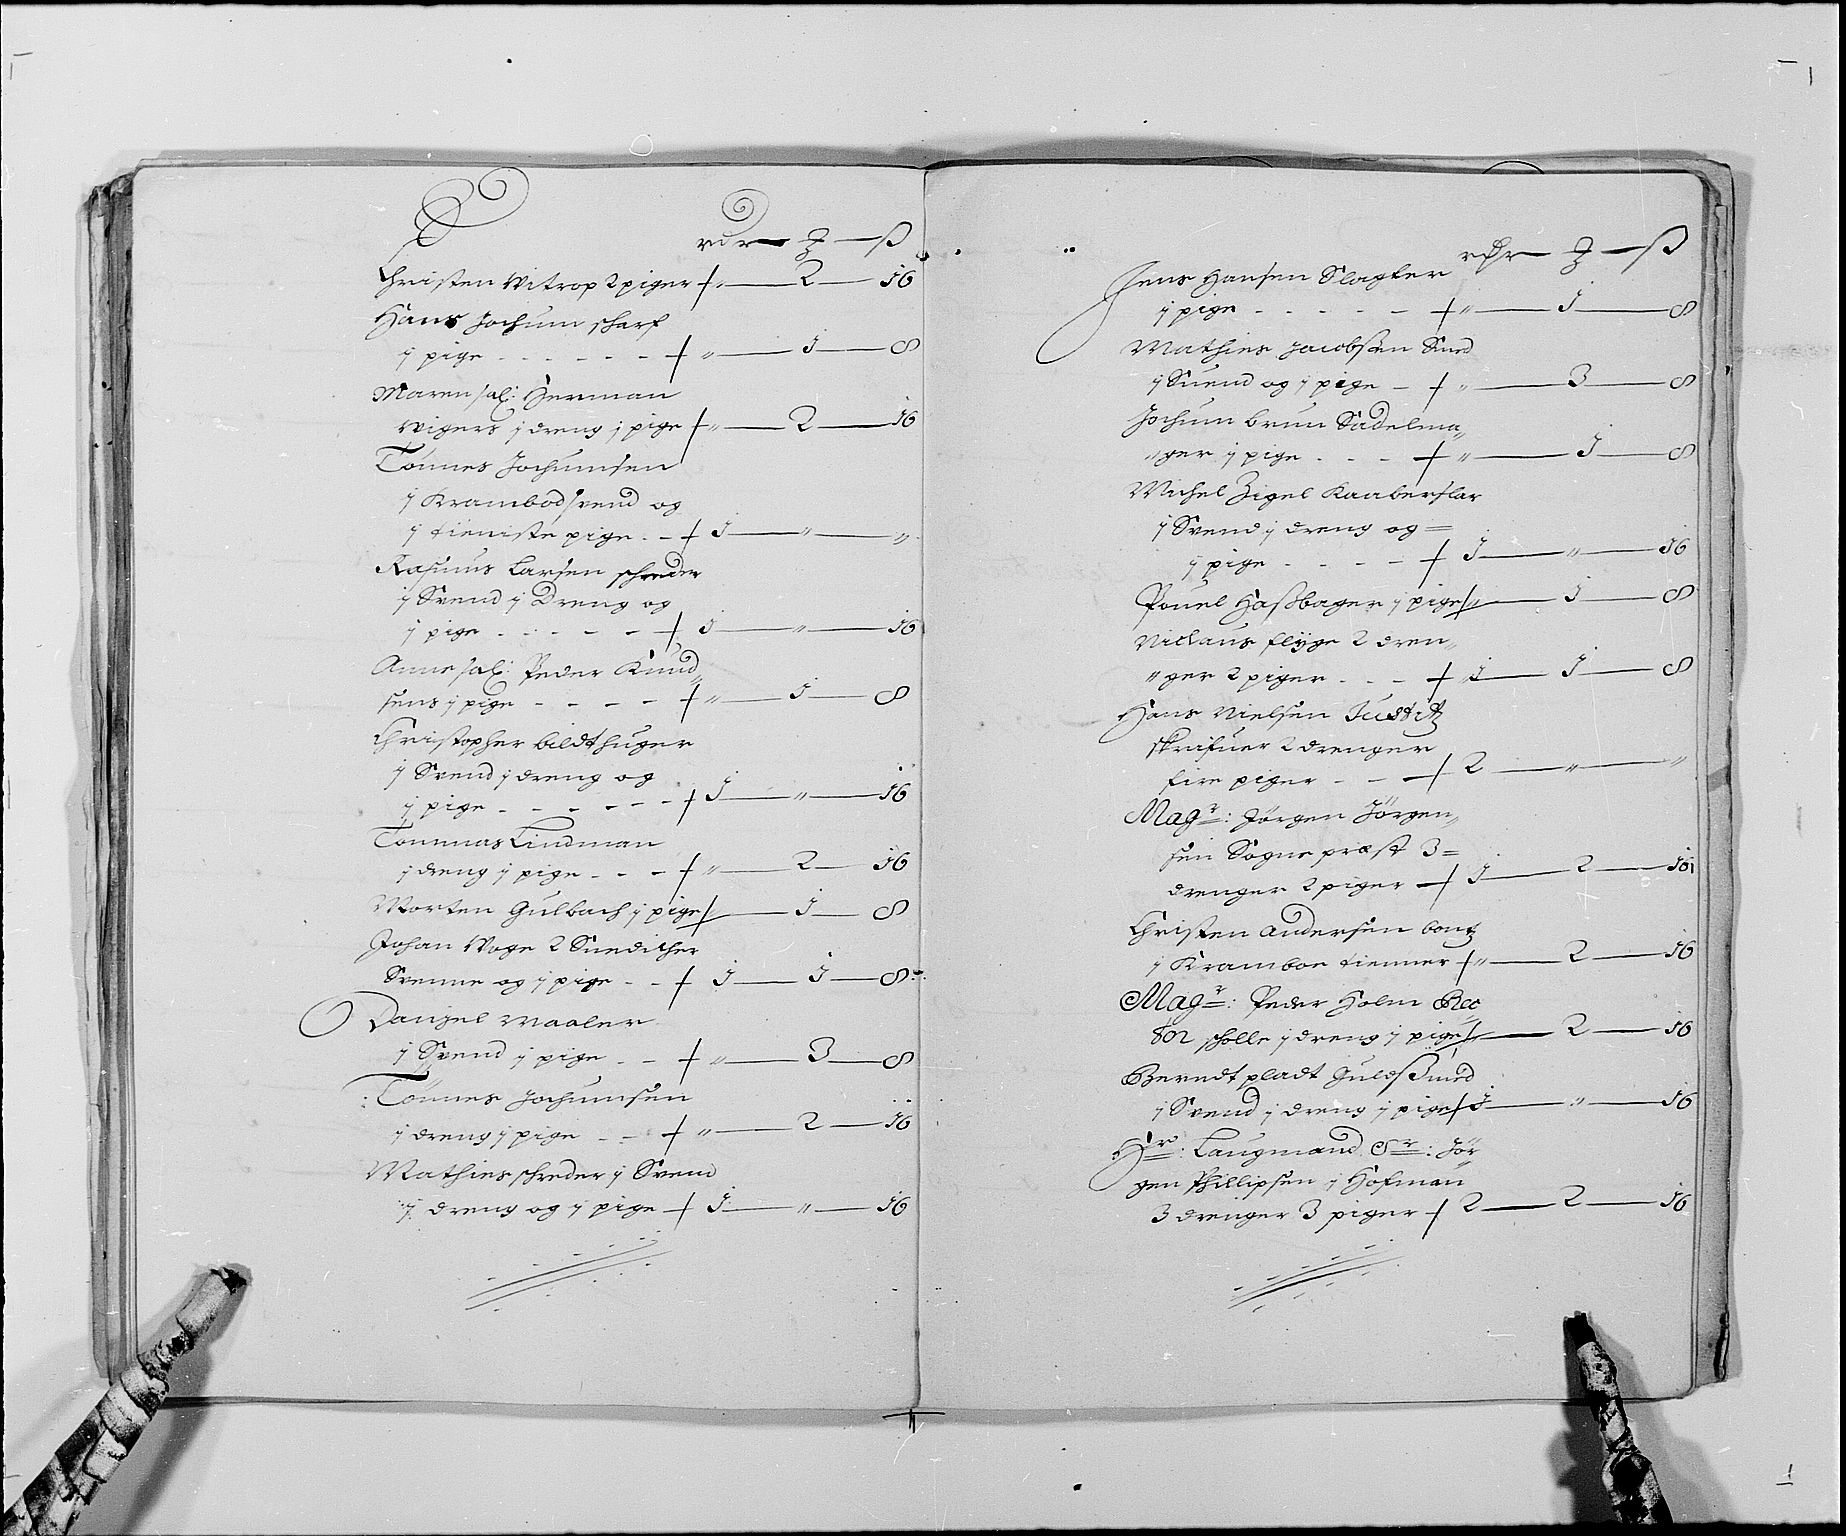 rdr — ℨ — ß
Christen Vitrop 2 piger + „ — 2 — 16
Hans Jochum scharf
j pige - - - - - + „ — 1 — 8
Maren sal: Herman
Wigers j dreng j pige + „ — 2 — 16
Tönnes Jochumsen
j Krambodsvend og
j tieniste pige - - + 1 — „ — „
Rasmus Larsen schreder
j Svend j Dreng og
j pige - - - - - + 1 — „ — 16
Anne sal: Peder Knud„
sens j pige - - - - + „ — 1 — 8
Christopher bildthuger
j Svend j dreng og
j pige - - - - - - + 1 — „ — 16
Tommas Lindman
j dreng j pige - - - + „ — 2 — 16
Morten Gulbach j pige + „ — 1 — 8
Johan Woge 2 Snedicher
Svenne og j pige - - + 1 — 1 — 8
Daniel Maaler
j Svend j pige - - + „ — 3 — 8
Tönnes Jochumsen
j dreng j pige - - + „ — 2 — 16
Mathies schreder j Svend
j dreng og j pige + 1 — „ — 16
rdr — ℨ — ß
Jens Hansen Slagter
j pige - - - - - + „ — 1 — 8
Mathies Jacobsen Smed
j Suend og j pige - + „ — 3 — 8
Jochum brun Sadelma„
„ger j pige - - - + „ — 1 — 8
Michel Zigel Kaaberslar
j Svend j dreng og =
j pige - - - - + 1 — „ — 16
Pouel Haßbager j pige + „ — 1 — 8
Niclaus flÿge 2 dren„
„ger 2 piger - - - + 1 — 1 — 8
Hans Nielsen Justitz
skrifuer 2 drenger
fire piger - - + 2 — „ — „
Magr: Jörgen Jörgen„
sen Sogne præst 3 =
drenger 2 piger + 1 — 2 — 16
Christen andersen bontz
j Kramboe tienner + „ — 2 — 16
Magr: Peder Holm Rec„
tor scholle j dreng j pige + „ — 2 — 16
Berndt pladt Guldsmed
j Svend j dreng j pige + 1 — „ — 16
Hr: Laugmand Sr: Jör„
gen Phillipsen j Hofman
3 drenger 3 piger + 2 — 2 — 16